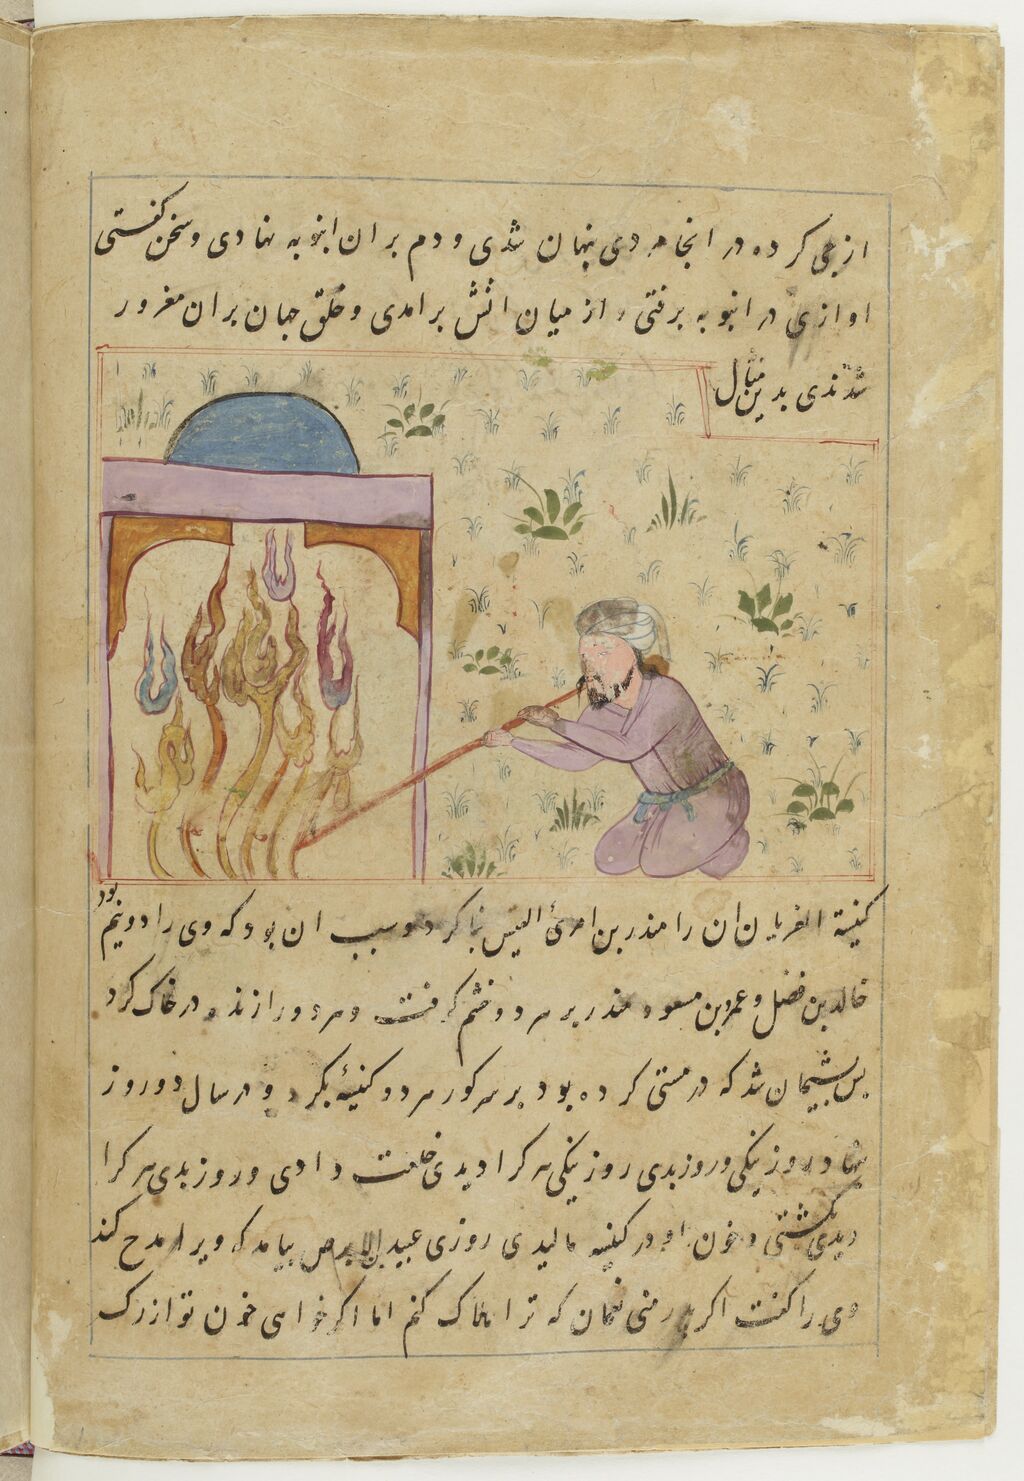 کرده در انجا مردی پنهان شدی و دم بران انبوبه نهادی و سخن گفتی
اوازی در انبوبه برفتی و از میان اتش برامدی و خلق جهان بران مغرور
شدندی بدین مثال
کنیسة الغریان ان را منذر بن امرئ القیس بنا کرد و سبب ان بود که وی را دو ندیم بود
خالد بن فضل و عمرو بن مسعود منذر بر هر دو خشم گرفت و هر دو را زنده در خاک کرد
پس پشیمان شد که در مستی کرده بود بر سر کور هر دو کنیسهٔ بکرد و در سال دو روز
بنهاد روز نیکی و روز بدی روز نیکی هر کرا دیدی خلعت دادی و روز بدی هر کرا
دیدی بکشتی و خون او در کنیسه مالیدی روزی عبید الابرص بیامد که ویرا مدح کند
وی را کفت اکر نعمان که ترا هلاک کنم اما اکر خواهی خون تو از رک